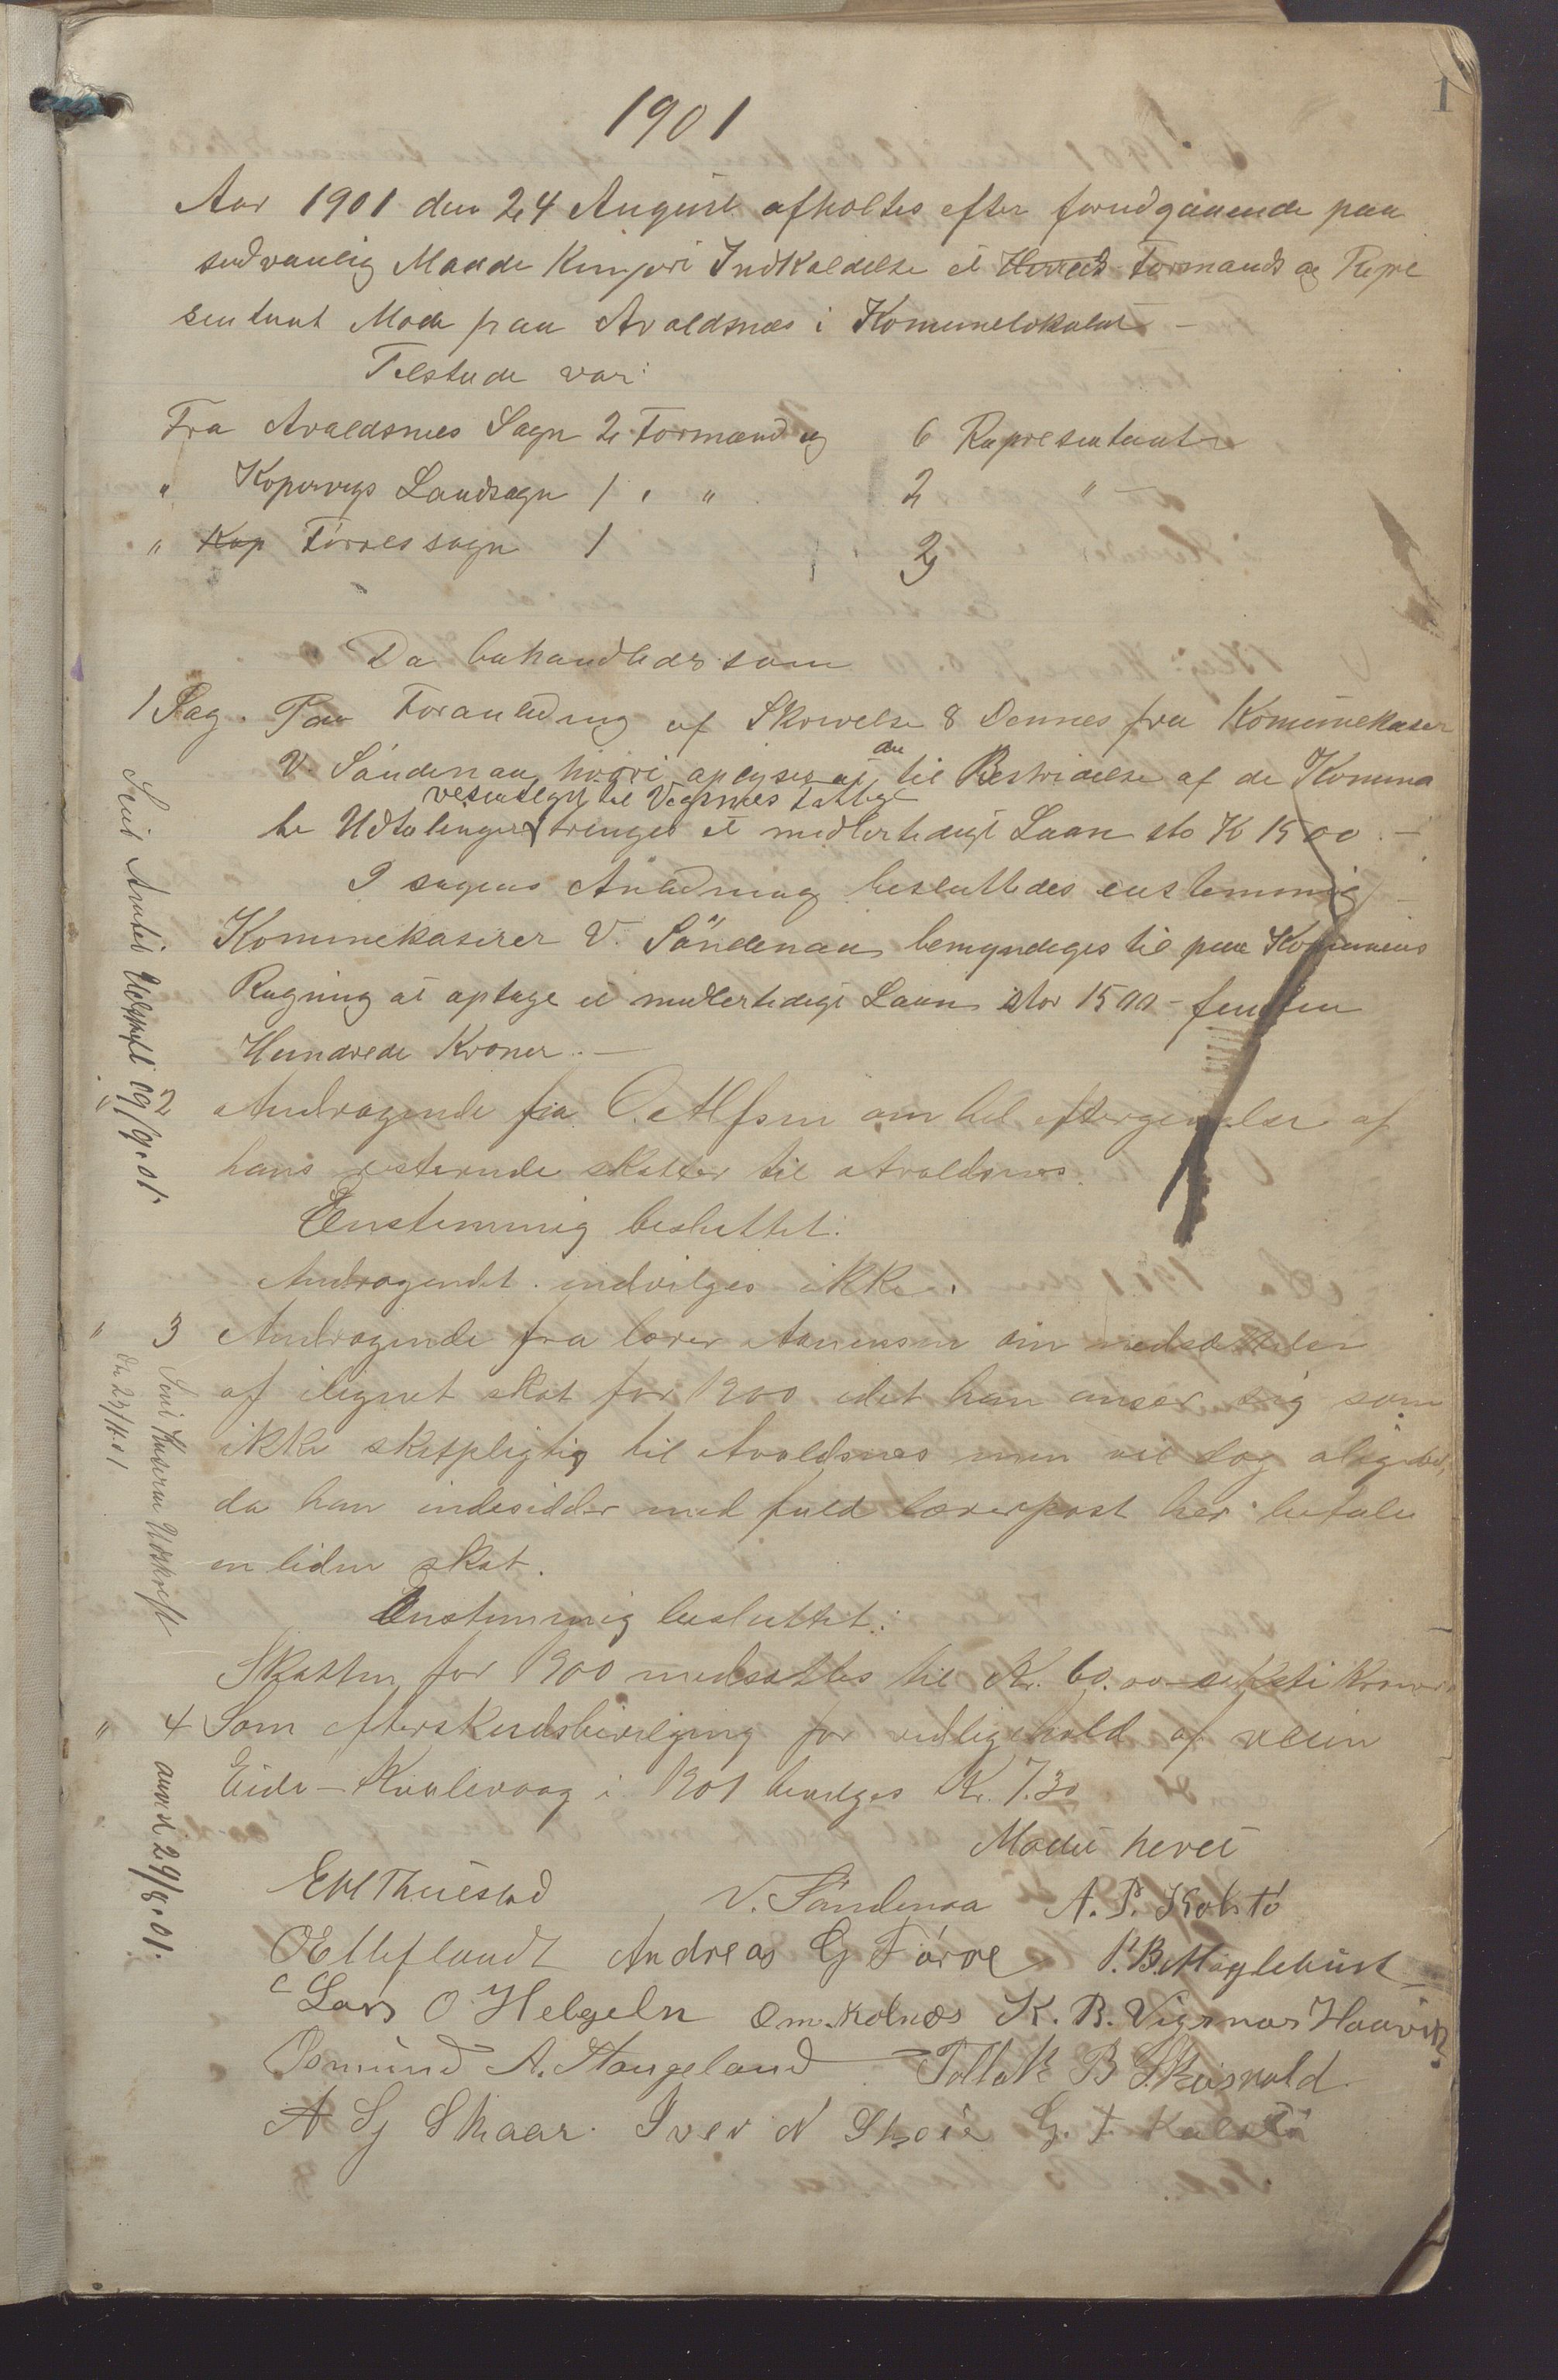 1
1901
Aar 1901 den 24 August afholtes efter forudgaaende paa
sedvanlig Maade Kunjort Indkaldelse et Herreds Formands og Repre
sentant Møde paa Avaldsnes i Komunelokalet -
Tilstede var:
Fra Avaldsnes Sogn 2 Formænd og 6 Representanter
" Kopervigs Landsogn 1 " " 2 "
" Kop Førressogn 1 2
Da behandledes som
1 Sag. Paa Foranledning af Skrivelse 8 Dennes fra Komunekaser
V. Søndenaa hvori oplyses at der til Bestridelse af de Komuna
vesentligt til Vegmes
le Udtelinger trenges et midlertidigt Laan sto K 1500. -
I sagens Anledning besluttedes enstemmig
Komunekaserer V. Søndenaa bemyndiges til paa Komunens
Regning at optage et midlertidigt Laan stor 1500 - femten
Hundrede Kroner. -
" 2 Andragende fra O. Alfsen om hel eftergivelse af
hans resterende skatter til Avaldsnes.
Enstemmig besluttet:
Andragendet indvilges ikke.
" 3 Andragende fra lærer Aanensen om nedsættelse
af ilignet skat for 1900 idet han anser sig som
ikke skatpligtig til Avaldsnes men vil dog aligevel,
da han indesidder med fuld lærerpost her betale
en liden skat.
Enstemmig besluttet:
Skatten for 1900 nedsattes til Kr. 60.00 seksti kroner
" 4 Som efterskudsbevilgning for vedligehold af veien
Eide - Kvalevaag i 1901 bevilges Kr. 7.30
Mødet hevet
Sent Amtet Udskrift 09/9.01.
Sent Kaseren Udskrift
den 23/11.01
anvist 29/8.01.
E H Thuestad V. Søndenaa A. P. Kolstø
O Elleflandt Andreas G Førre P. B. Møglebust
Lars O Helgeln O M. Kolnes K. B. Vigsnes Haavik
Osmund A. Hangeland Tollak B Skeisvold.
A Sj Skaar. Iver N Stseie G. T. Kalstø